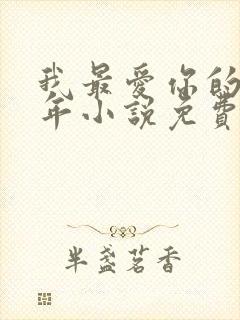 我最爱你的
年小說免費
半盏茗香